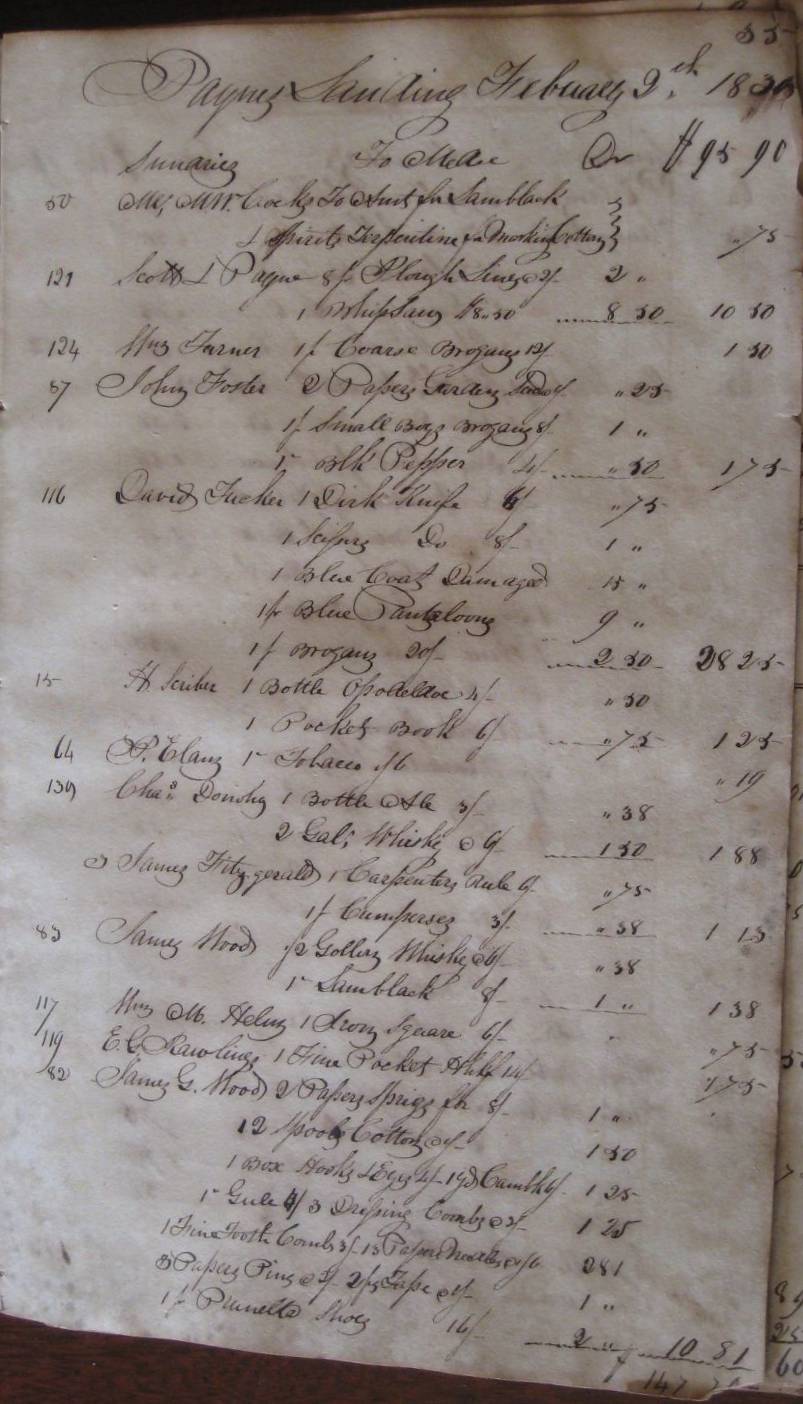 55
Paynes Landing February 9th 18
Sundries To Mdse Dr $95 90
50 Mr Cocks To Acust for Lamblack
& Spirits Terpentine for Markin Cotton "75
121 Scott & Payne 8 p Plough Lines @ 2/- 2 "
1 Whip Saw $8.50 8 50 10 50
124 Wm Turner 1 p Coarse Brogans 12/- 1 50
57 John Foster 2 Papers Garden Seeds 1/- " 25
1 p Small Boys Brogans 8/- 1 "
1 " Blk Pepper 4/- " 50 1 75
116 David Tucker 1 Dirk Knife 6/- " 75
1 Scissors Do 8/- 1 "
1 Blue Coat Damaged 15 "
1 pr Blue Pantaloons 9 "
1 p Brogans 20/- 2 50 28 25
15 H Scriber 1 Bottle Opodeldoc 4/- " 50
1 Pocket Book 6/- " 75 1 25
64 P. Elans 1 " Tobacco 1/6 " 19
139 Chas. 1 Bottle Ale 3/- " 38
2 Gals Whiskey @ 6/- 1 50 1 88
3 James Fitzgerald 1 Carpenters Rule 6/- " 75
1 p Cumperses 3/- " 38 1 13
83 James Wood 1/2 Gollen Whiskey @ 6/- " 38
1 " Lamblack 8/- 1 " 1 38
117 Wm M. Helm 1 Iron Square 6/- " 75
119 E. G. Rawlings 1 Fine Pocket Hkkf 14/- 1 75
82 James G. Wood 2 Papers Sprigs for 8/- 1 "
12 Spools Cotton @ 1/- 1 50
1 Box Hooks & Eyes 4/- 1 yd Camb 6/- 1 25
1 " Glue 4/ 3 Dressing Combs @ 2/- 1 25
1 Fine Tooth Comb 3/- 13 Papers Needles @ 1/6 2 81
3 Papers Pins @ 2/- 2 ps Tape @ 1/- 1 "
1 p Prunella Shoes 16/- 2 " 10 81
147